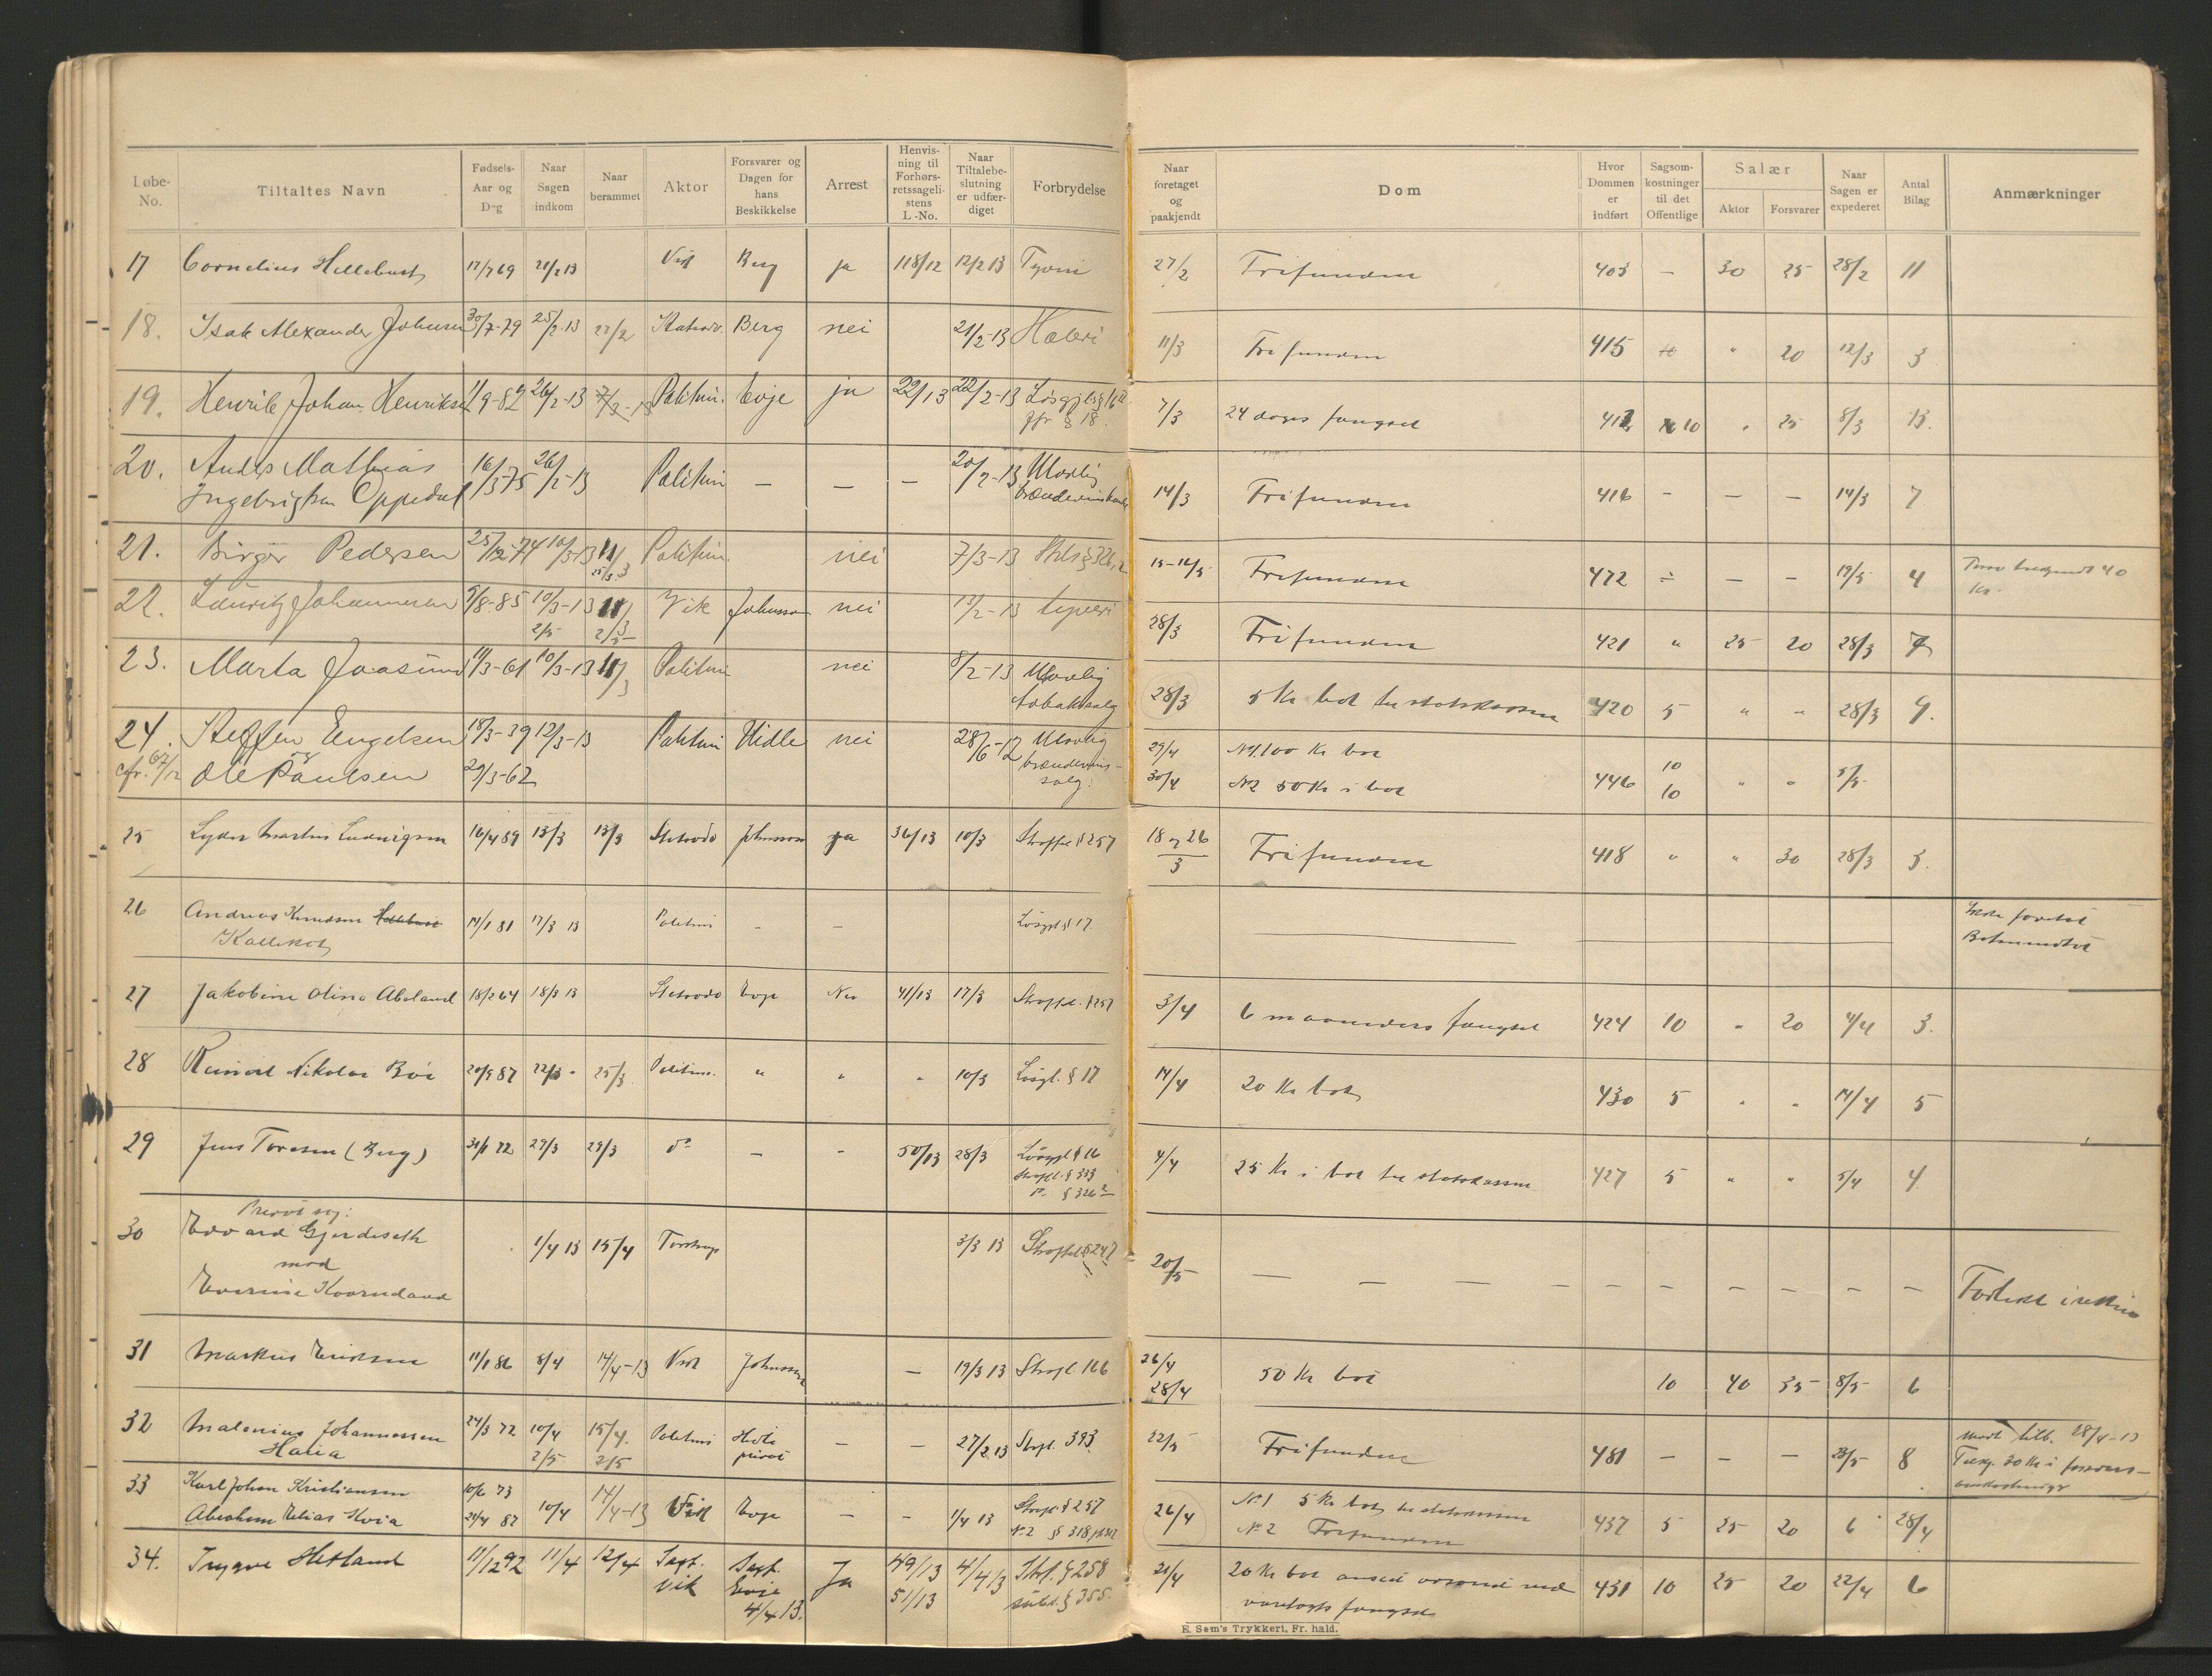 Løbe-No. Tiltaltes Navn Fødsels-Aar og Dag Naar Sagen indkom Naar berammet Aktor Forsvarer og Dagen for hans Beskikkelse Arrest Henvisning til Forhørsretssagelistens L.-No. Naar Tiltalebeslutning er udfærdiget Forbrydelse Naar foretaget og paakjendt Dom Hvor Dommen er indført Sagsomkostninger til det Offentlige Salær Aktor Forsvarer Naar Sagen er expederet Antal Bilag Anmærkninger
17 Cornelius Hellebust 17/7 69 21/2 13 Vik Berg ja 118/12 12/2 13 Tyveri 27/2 Frifunden 403 — 30 25 28/2 11
18. Isak Alexander Johnsen 30/7-79 25/2-13 27/2 Statsadv. Berg nei 21/2-13 Hæleri 11/3 Frifunden 415 " 20 12/3 3
19. Henrik Johan Henriksen 11/9-82 26/2-13 7/3-13 Politim. Evje ja 22/13 22/2-13 Løsgjl. § 16 jfr § 18. 7/3 24 dages fængsel 412 10 " 25 8/3 13.
20. Anders Mathias 16/3 75 26/2-13 Politim — — — 20/2-13 Ulovlig
Ingebrigtsen Oppedal brændevinshandel 14/3 Frifunden 416 - — — 14/3 7
21. Birger Pedersen 25/12-74 10/3-13 11/3 Politim. nei 7/3-13 Strl § 326,2 15-16/5 Frifunden 472 ÷ — — 19/5 4 40
Kr.
22. Lauritz Johannesen 9/8-85 10/3-13 11/3 Vik Johnsson nei 13/2-13 tyveri 28/3 Frifunden 421 " 25 20 28/3 7
2/5 2/5
23. Marta Joasund 11/3-61 10/3-13 11/3 Politim nei 8/2-13 Ulovlig
tobaksalg 28/3 5 Kr bot til statskassen 420 5 " " 28/3 9.
24. Steffen Engelsen 18/3-39 12/3-13 Politim Hidle nei 28/6-12 Ulovlig brændevins- 29/4 No 1. 100 Kr bot 10
cfr. 67/12 og Ole Paulsen 29/3-62 salg. 30/4 No 2 50 Kr i bot 446 10 " " 5/5
25 Lyder Martin Ludvigsen 16/4 89 13/3 13/3 Statsadv Johnsson ja 36/13 10/3 Straffel § 257 18 og 26/3 Frifunden 418 " " 30 28/3 3.
26 Andreas Knudsen 14/1 81 17/3 13 Politim — — Løsgjl § 17. Ikke foretat
27 Jakobine Olina Abeland 18/2 64 18/3 13 Statsadv Evje Nei 41/13 17/3 Straffel. § 257 3/4 6 maaneders fængsel 424 10 " 20 4/4 3.
28 Reinert Nikolai Bøe 20/9 87 22/3 " 25/3 Politim. " " " 10/3 Løsgl. § 17 14/4 20 Kr bot 430 5 " " 14/4 5
29 Jens Toresen (Berg) 31/1 72 29/3 29/3 do — - 50/13 28/3 Løsgjl § 16
Straffl. § 333
do § 326 2 4/4 25 Kr i bot til statskassen 427 5 " " 5/4 4
30 Privat sag:
Edvard Gjerdeseth 1/4 13 15/4 Torstrup 3/3 13 Straffel § 247 20/5 — — — — — — — — — — Forlikt i retten
mod
31 Markus Eriksen 11/1 86 8/4 14/4-13 Vik Johnsson — 19/3 13 Strafl 166 26/4 28/4 50 Kr bot 10 40 35 8/5 6
32 Malenius Johannessen 24/3 72 10/4 15/4. Politim Hole — — 27/2 13 Strfl. 393. 22/5 Frifunden 481 — — — 23/5 8 28/4-13
Halia 2/5 2/5 privat 30 Kr i
33 Karl Johan Kristiansen 10/6 73 Strafl § 257 No 1 5 Kr bot til statskassen
Abraham Elias Hoia 21/4 87 10/4 14/4-13 Vik Evje — — 1/4 13 No 2 § 318 26/4 No 2 Frifunden 437 5 25 20 6 28/4
34. Trygve Hetland 11/12 92 11/4 12/4 Sagf. Sagf. Ja 49/13 4/4 13 Strl. § 258 21/4 20 Kr bot ansees avsonet ved 431 10 25 20 22/4 6
Vik Evje 51/13 subs. § 355. varetægts fængsel
4/4 13.
E. Sem's Trykkeri, Fr. hald.